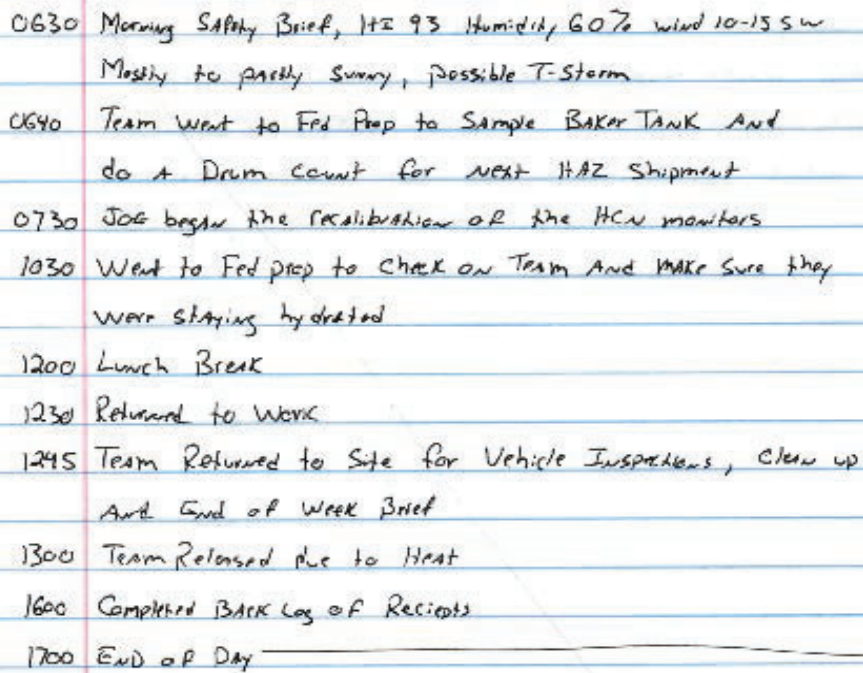 0630 Morning Safety Brief, HI 93 Humidity 60% wind 10-15 SW
Mostly to partly sunny, possible T-Storm
0640 Team went to Fed Prop to Sample Baker Tank And
do A Drum count for next HAZ Shipment
0730 Joe began the recalibration of the HCN monitors
1030 Went to Fed prop to Check on Team And make sure they
were staying hydrated
1200 Lunch Break
1230 Returned to Work
1245 Team Returned to Site for Vehicle Inspections, clean up
And End of Week Brief
1300 Team Released due to Heat
1600 Completed Back Log of Reciepts
1700 End of Day